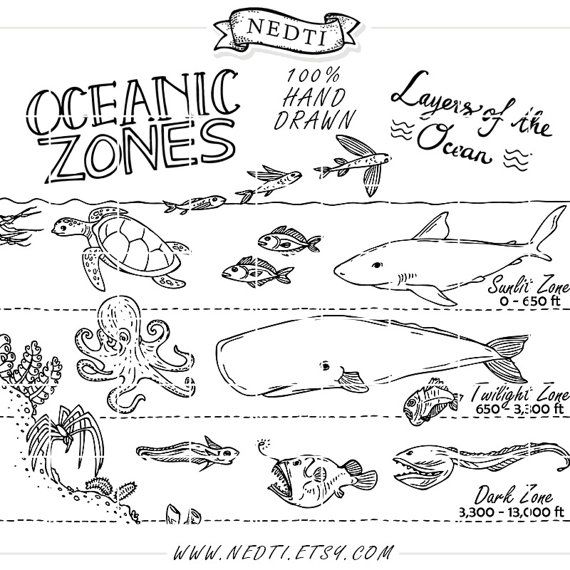 NEDTI
OCEANIC
ZONES
100%
HAND
DRAWN
Layers of the
Ocean
Sunlit Zone
0 - 650 ft
Twilight Zone
650 - 3,300 ft
Dark Zone
3,300 - 13,000 ft
WWW.NEDTI.ETSY.COM